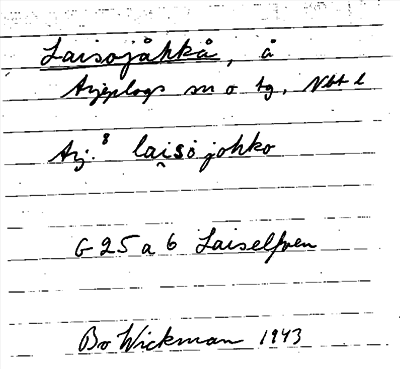 Laisojåhkå, å
Arjeplogs sn o tg, Vbt l
Arj. 8 lai̯sojohko
G 25 a b Laiselfven
Bo Wickman 1943